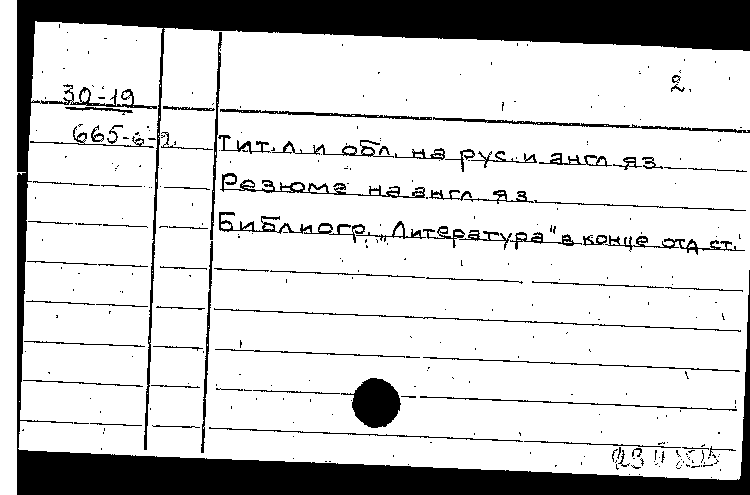 2.
30-19
665-6-9.
Тит. л. и обл. на рус. и англ. яз.
Резюме на англ. яз.
Библиогр. „Литература" в конце отд. ст.